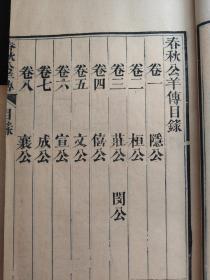 春秋公羊傳目錄
卷一 隱公
卷二 桓公
卷三 莊公 閔公
卷四 僖公
卷五 文公
卷六 宣公
卷七 成公
卷八 襄公
春秋公羊傳 目錄